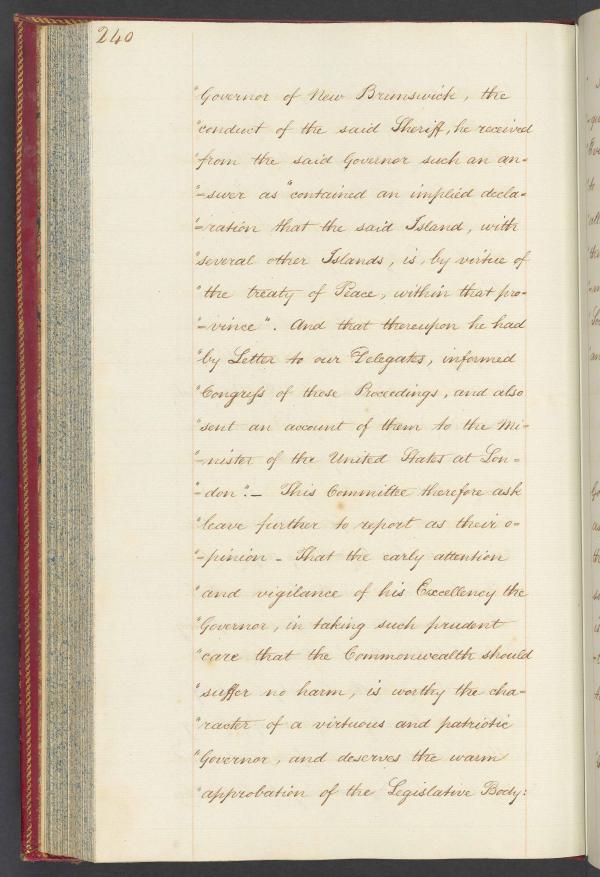 240
"Governor of New Brunswick, the
"conduct of the said Sheriff, he received
"from the said Governor such an an-
"-swer as "contained an implied decla-
"-ration that the said Island, with
"several other Islands, is, by virtue of
"the treaty of Peace, within that pro-
"-vince". And that thereupon he had
"by Letter to our Delegates, informed
"Congress of those Proceedings, and also
"sent an account of them to the Mi-
"-nister of the United States at Lon-
"-don".- This Committee therefore ask
"leave further to report as their o-
"-pinion - That the early attention
"and vigilance of his Excellency the
"Governor, in taking such prudent
"care that the Commonwealth should
"suffer no harm, is worthy the cha-
"racter of a virtuous and patriotic
"Governor, and deserves the warm
"approbation of the Legislative Body: